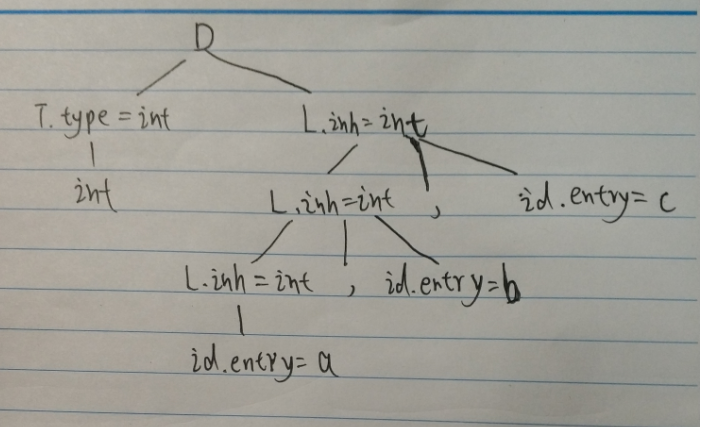 D
T.type = int L.inh = int
int L.inh = int , id.entry = c
L.inh = int , id.entry = b
id.entry = a